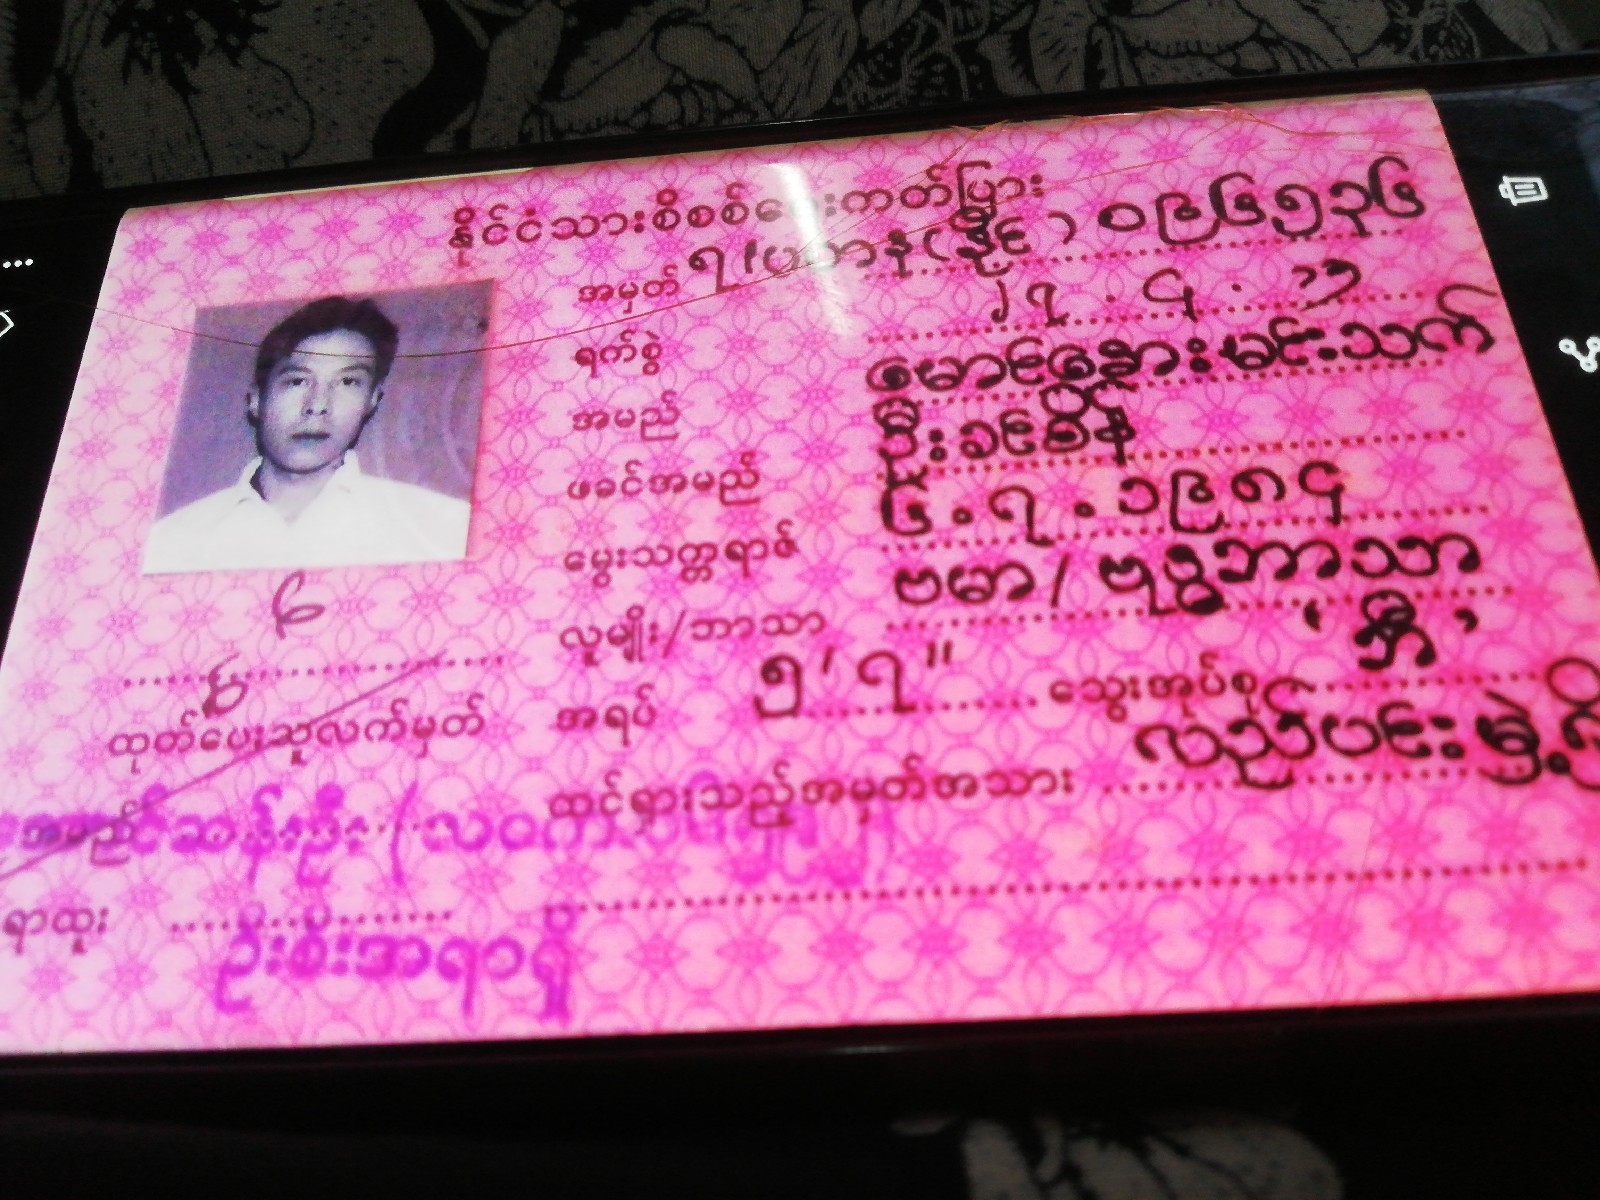 နိုင်ငံသားစိစစ်ရေးကတ်ပြား
အမှတ် ၇/ပတန(နိုင်) ၀၉၆၅၃၆
ရက်စွဲ ၂၇.၄.
အမည် မောင်နွေးမင်းသက်
ဖခင်အမည် ဦးခင်စိန်
မွေးသက္ကရာဇ် ၆.၇.၁၉၈၄
လူမျိုး/ဘာသာ ဗမာ/ဗုဒ္ဓဘာသာ
အရပ် ၅'၇" သွေးအုပ်စု 'ဘီ'
ထင်ရှားသည့်အမှတ်အသား လည်ပင်းမှဲ့ရှိ
ထုတ်ပေးသူလက်မှတ်
အမည်
ရာထူး
ဦးစီးအရာရှိ